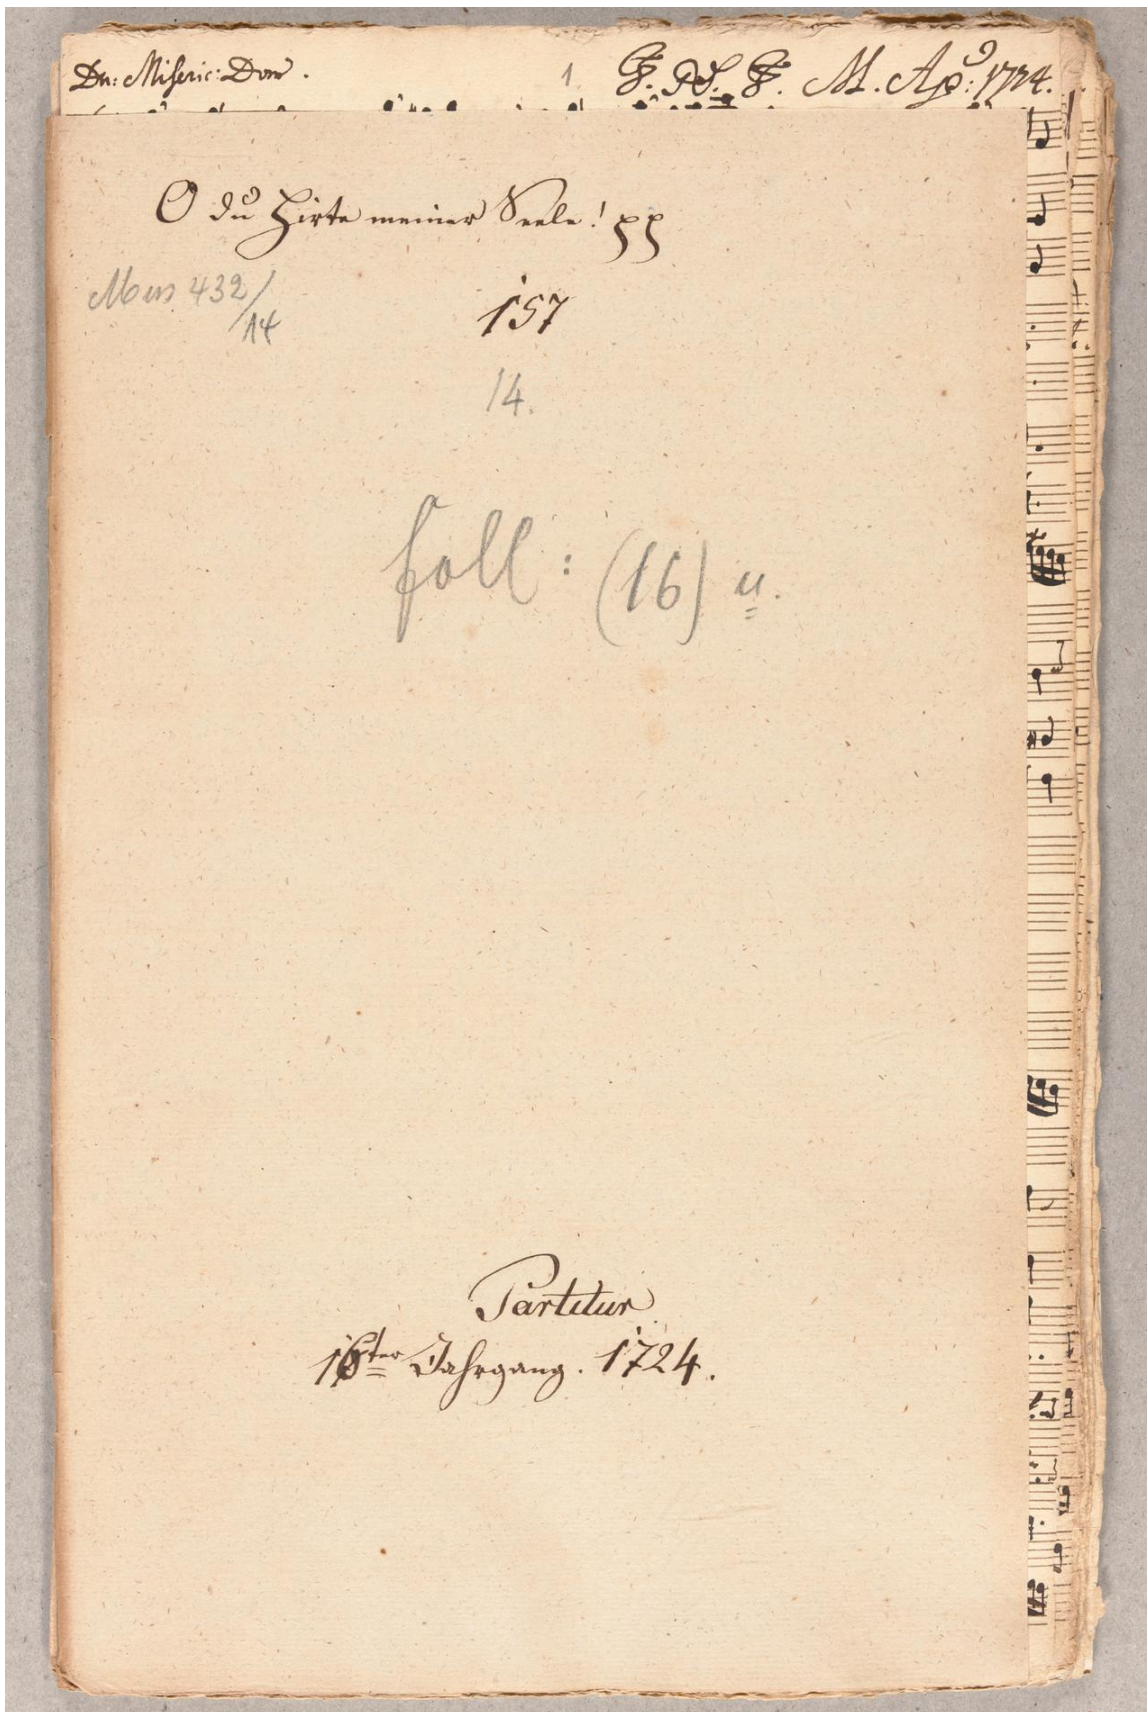 Dn: Miseric: Dom.
1. G. D. G. M. Ap: 1724.
O du Hirte meiner Seele! pp
Mus 432/
14
157
14.
foll: (16) u.
Partitur
16ter Jahrgang. 1724.